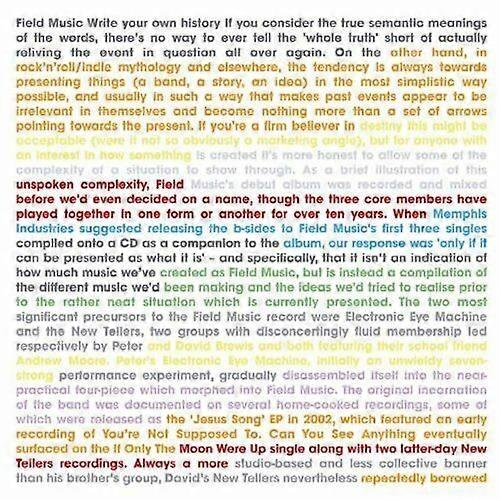 Field Music Write your own history If you consider the true semantic meanings
of the words, there's no way to ever tell the 'whole truth' short of actually
reliving the event in question all over again. On the other hand, in
rock'n'roll/indie mythology and elsewhere, the tendency is always towards
presenting things (a band, a story, an idea) in the most simplistic way
possible, and usually in such a way that makes past events appear to be
irrelevant in themselves and become nothing more than a set of arrows
pointing towards the present. If you're a firm believer in destiny this might be
acceptable (were it not so obviously a marketing angle), but for anyone with
an interest in how something is created it's more honest to allow some of the
complexity of a situation to show through. As a brief illustration of this
unspoken complexity, Field Music's debut album was recorded and mixed
before we'd even decided on a name, though the three core members have
played together in one form or another for over ten years. When Memphis
Industries suggested releasing the b-sides to Field Music's first three singles
compiled onto a CD as a companion to the album, our response was 'only if it
can be presented as what it is' – and specifically, that it isn't an indication of
how much music we've created as Field Music, but is instead a compilation of
the different music we'd been making and the ideas we'd tried to realise prior
to the rather neat situation which is currently presented. The two most
significant precursors to the Field Music record were Electronic Eye Machine
and the New Tellers, two groups with disconcertingly fluid membership led
respectively by Peter and David Brewis and both featuring their school friend
Andrew Moore. Peter's Electronic Eye Machine, initially an unwieldy seven-
strong performance experiment, gradually disassembled itself into the near-
practical four-piece which morphed into Field Music. The original incarnation
of the band was documented on several home-cooked recordings, some of
which were released as the 'Jesus Song' EP in 2002, which featured an early
recording of You're Not Supposed To. Can You See Anything eventually
surfaced on the If Only The Moon Were Up single along with two latter-day New
Tellers recordings. Always a more studio-based and less collective banner
than his brother's group, David's New Tellers nevertheless repeatedly borrowed